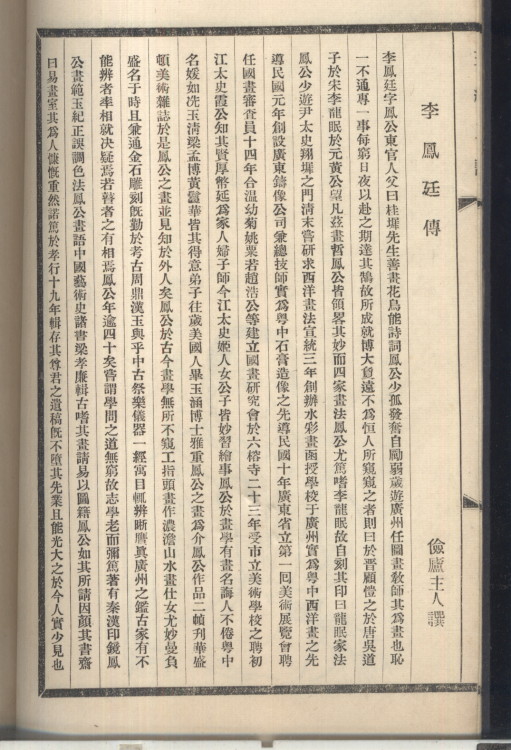 李鳳廷傳
儉廬主人譔
李鳳廷字鳳公東官人父曰桂墀先生善畫花鳥能詩詞鳳公少孤發奮自勵弱歲遊廣州任圖畫敎師其爲畫也恥
一不通專一事每窮日夜以赴之期達其鵠故所成就博大敻遠不爲恒人所窺窺之者則曰於晉顧愷之於唐吳道
子於宋李龍眠於元黃公望凡茲畫哲鳳公皆領畧其妙而四家畫法鳳公尤篤嗜李龍眠故自刻其印曰龍眠家法
鳳公少遊尹太史翔墀之門淸末嘗研求西洋畫法宣統三年創辦水彩畫函授學校于廣州實爲粤中西洋畫之先
導民國元年創設廣東鑄像公司兼總技師實爲粤中石膏造像之先導民國十年廣東省立第一回美術展覽會聘
任國畫審查員十四年合溫幼菊姚粟若趙浩公等建立國畫研究會於六榕寺二十三年受市立美術學校之聘初
江太史霞公知其賢厚幣延爲家人婦子師今江太史姬人女公子皆妙習繪事鳳公於畫學有畫名誨人不倦粤中
名媛如冼玉淸梁孟博黃蕡華皆其得意弟子往歲美國人畢玉涵博士雅重鳳公之畫爲介鳳公作品二幀刋華盛
頓美術雜誌於是鳳公之畫並見知於外人矣鳳公於古今畫學無所不窺工指頭畫作濃澹山水畫仕女尤妙曼負
盛名于時且兼通金石雕刻旣勤於考古周鼎漢玉與乎中古祭樂儀器一經寓目輒辨晰贋眞廣州之鑑古家有不
能辨者率相就決疑焉若瞽者之有相焉鳳公年逾四十矣嘗謂學問之道無窮故志學老而彌篤著有秦漢印鏡鳳
公畫範玉紀正誤調色法鳳公畫語中國藝術史諸書梁孝廉輯古嗜其畫請易以圖籍鳳公如其所請因顏其書齋
曰易畫室其爲人慷慨重然諾篤於孝行十九年輯存其尊君之遺稿旣不墮其先業且能光大之於今人實少見也